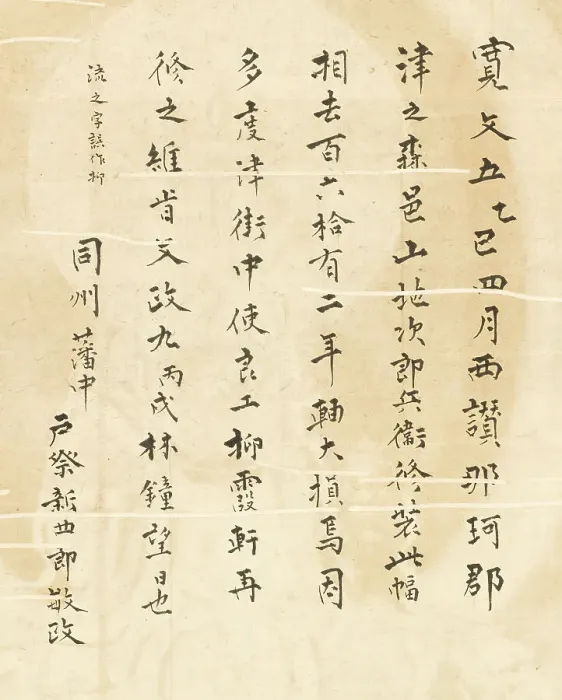 寛文五乙巳四月西讃那珂郡
津之森邑山地次郎兵衞修装此幅
相去百六拾有二年軸大損焉因
多度津街中使良工柳霞軒再
修之維旹文政九丙戌林鐘望日也
流之字誤作柳
同州藩中
戸祭新四郎敏政